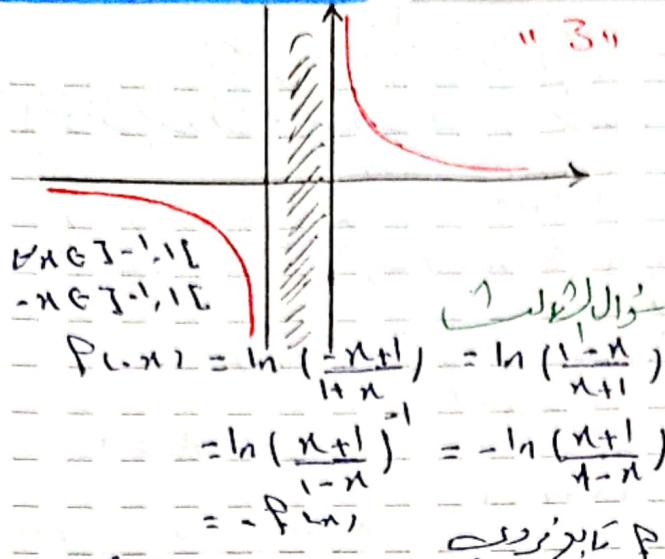 "3"
∀x ∈ ]-1,1[
-x ∈ ]-1,1[
السؤال الثالث
f(-x) = ln (\frac{-x+1}{1+x}) = ln (\frac{1-x}{x+1})
= ln (\frac{x+1}{1-x})^{-1} = -ln (\frac{x+1}{1-x})
= -f(x)
f تابع فردي